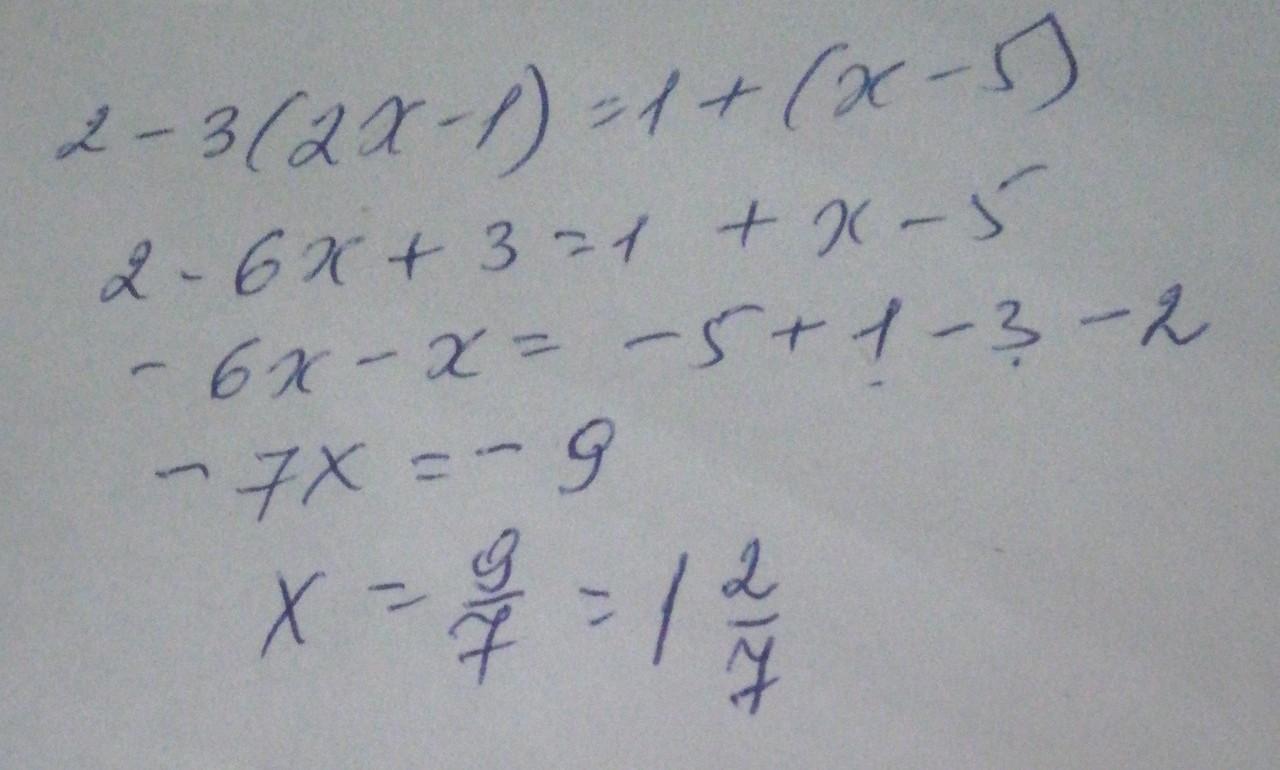 2 - 3(2x - 1) = 1 + (x - 5)
2 - 6x + 3 = 1 + x - 5
- 6x - x = - 5 + 1 - 3 - 2
- 7x = - 9
x = 9/7 = 1 2/7